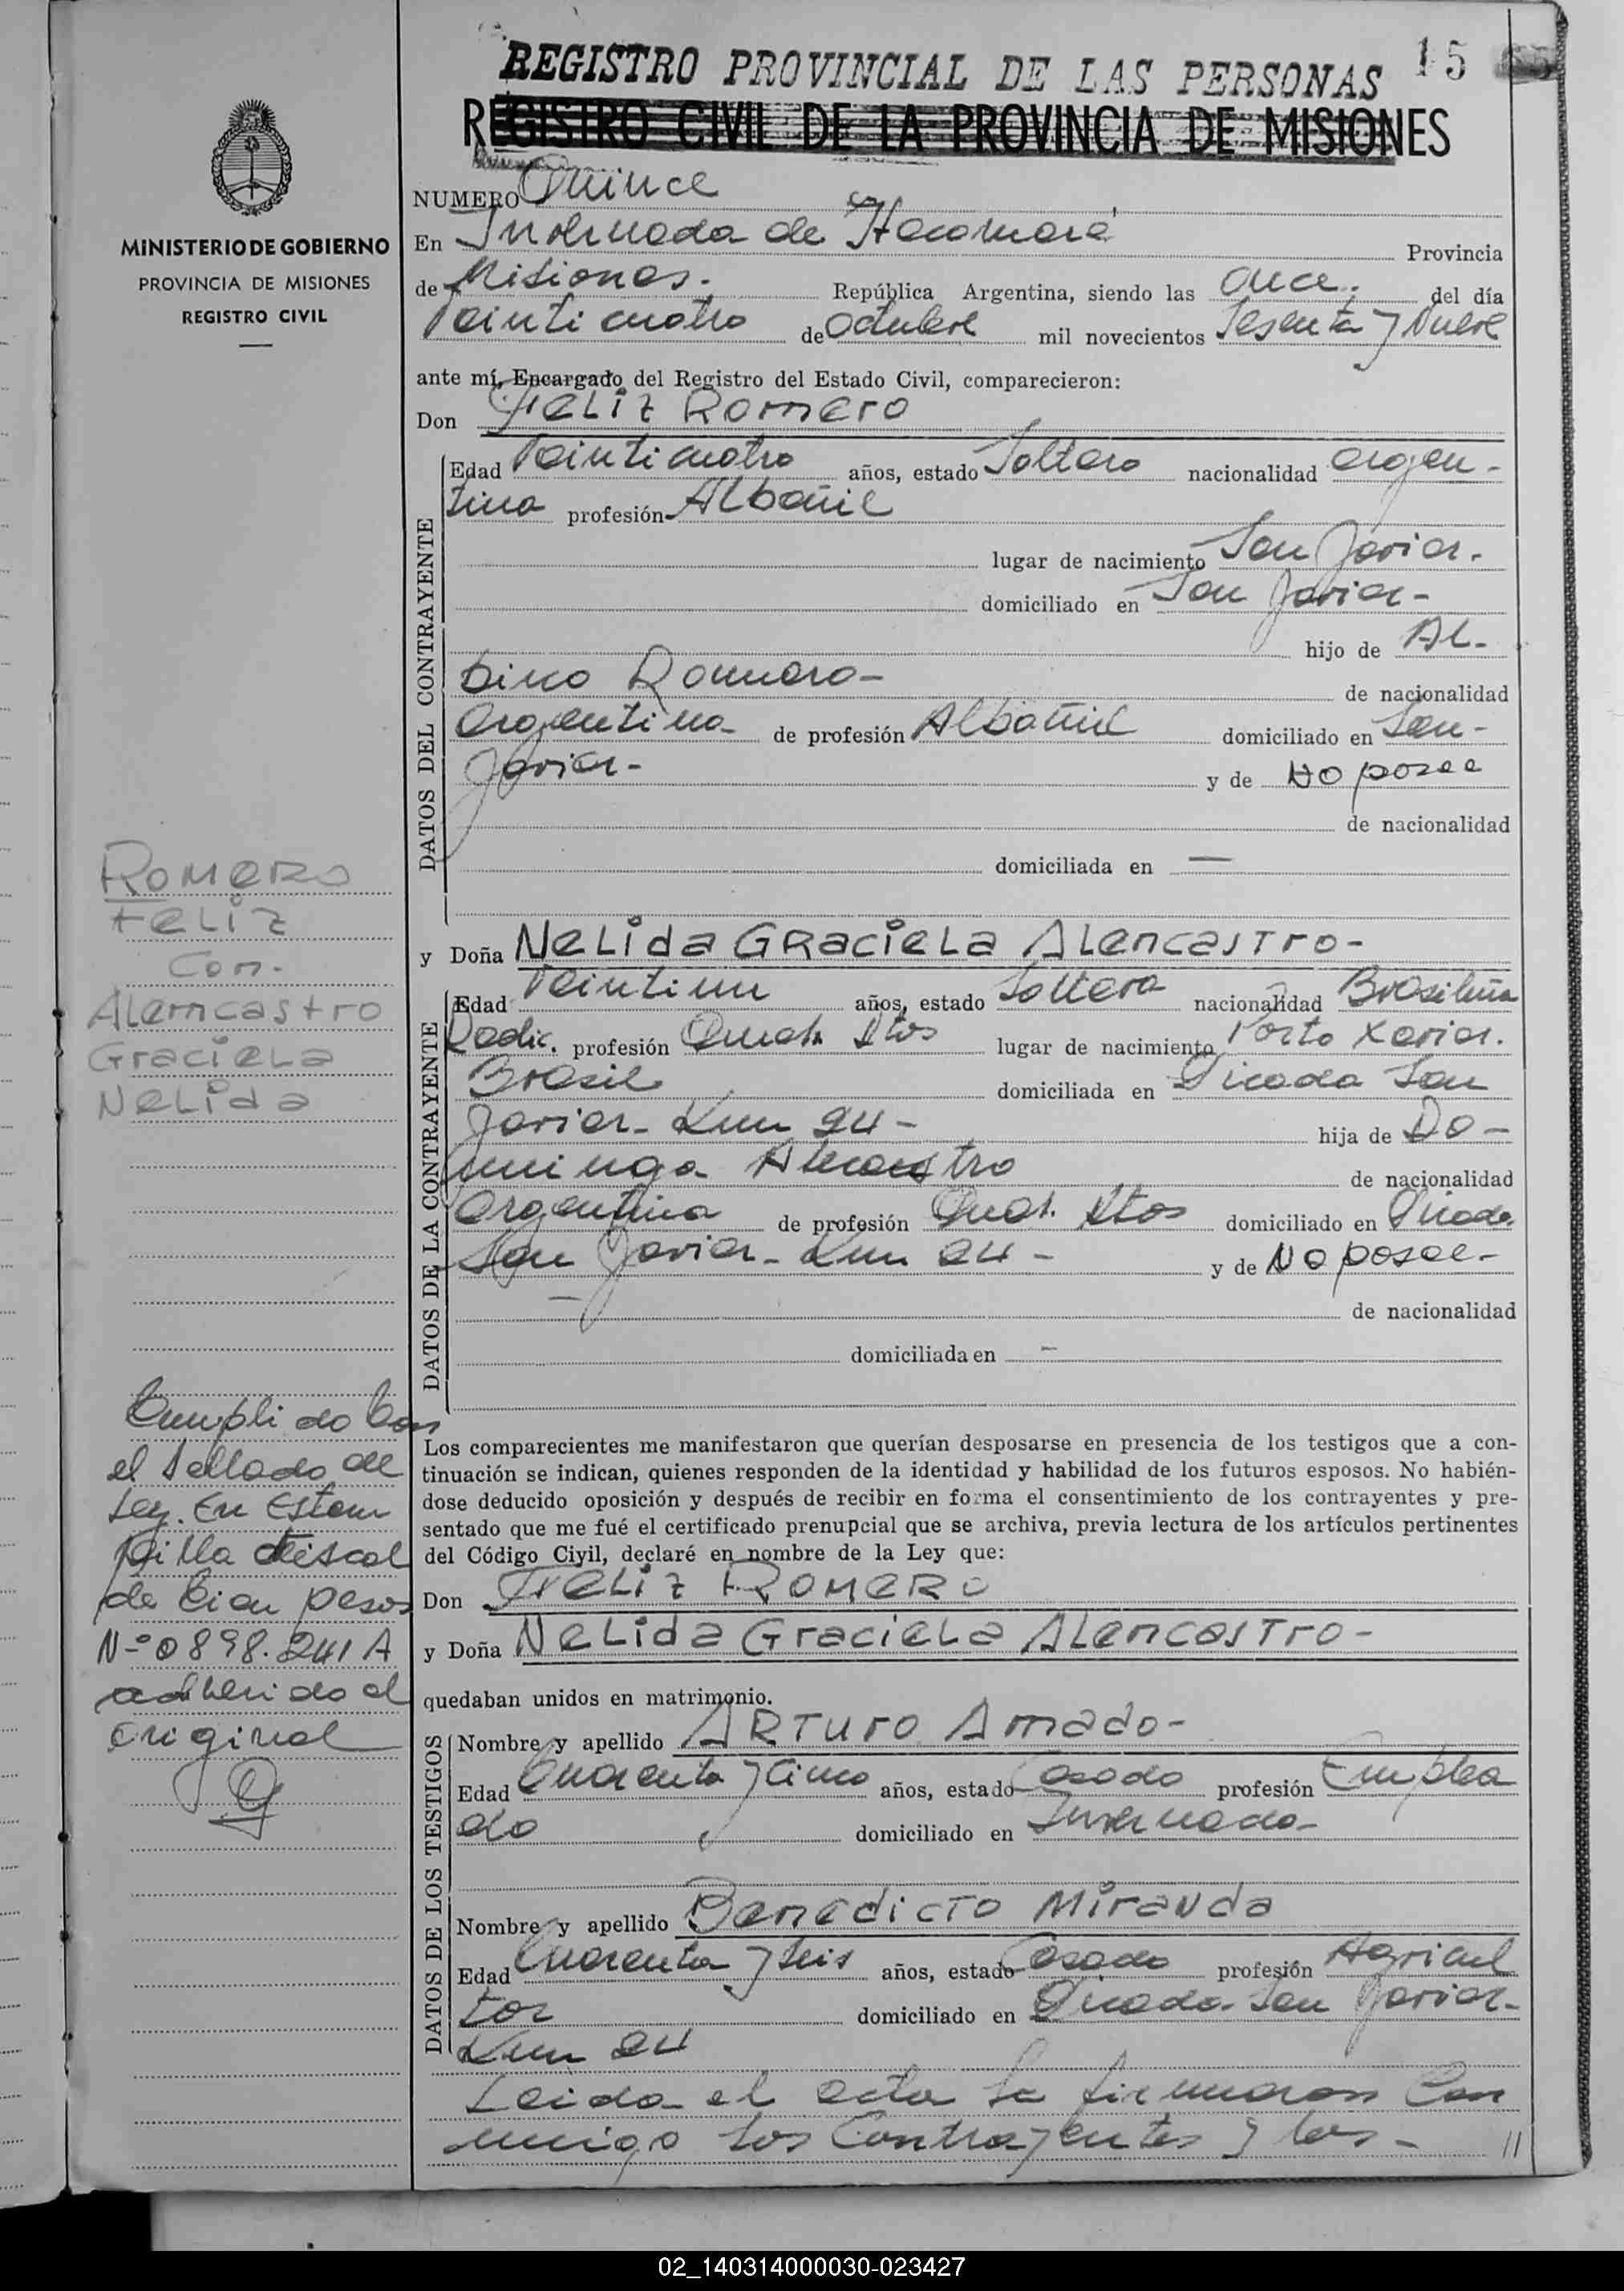 REGISTRO PROVINCIAL DE LAS PERSONAS
15
REGISTRO CIVIL DE LA PROVINCIA DE MISIONES
MINISTERIO DE GOBIERNO
PROVINCIA DE MISIONES
REGISTRO CIVIL
NUMERO Quince
En Invernada de Itacaruaré Provincia
de Misiones. República Argentina, siendo las Once. del día
Veinticuatro de Octubre mil novecientos Sesenta y Nueve
ante mí, Encargado del Registro del Estado Civil, comparecieron:
Don Feliz Romero
DATOS DEL CONTRAYENTE
Edad Veinticuatro años, estado Soltero nacionalidad Argen-
tina profesión Albañil
lugar de nacimiento San Javier.
domiciliado en San Javier-
hijo de Al-
bino Romero- de nacionalidad
Argentina- de profesión Albañil domiciliado en San-
Javier- y de No posee
de nacionalidad
domiciliada en —
Romero
Feliz
Con-
Alemcastro
Graciela
Nelida
y Doña Nelida Graciela Alencastro-
DATOS DE LA CONTRAYENTE
Edad Veintiun años, estado Soltera nacionalidad Brasileña
Radic. profesión Queh. Dtos lugar de nacimiento Porto Xavier.
Brasil domiciliada en Picada San
Javier- Km 24- hija de Do-
minga Alencastro de nacionalidad
Argentina de profesión Queh. Dtos domiciliado en Picada
San Javier- Km 24- y de No posee-
de nacionalidad
domiciliada en -
Cumplido Con
el Sellado de
Ley. En Estam
pilla fiscal
de Cien pesos
Nº 0898.241 A
adherido al
Original
Los comparecientes me manifestaron que querían desposarse en presencia de los testigos que a con-
tinuación se indican, quienes responden de la identidad y habilidad de los futuros esposos. No habién-
dose deducido oposición y después de recibir en forma el consentimiento de los contrayentes y pre-
sentado que me fué el certificado prenupcial que se archiva, previa lectura de los artículos pertinentes
del Código Civil, declaré en nombre de la Ley que:
Don Feliz Romero
y Doña Nelida Graciela Alencastro-
quedaban unidos en matrimonio.
DATOS DE LOS TESTIGOS
Nombre y apellido Arturo Amado-
Edad Cuarenta y Cinco años, estado Casado profesión Emplea
do domiciliado en Invernada-
Nombre y apellido Benedicto Miranda
Edad Cuarenta y Seis años, estado Casado profesión Agricul
tor domiciliado en Picada San Javier-
Km 24
Leida el acta la firmaron Con
migo los Contrayentes y los- //
02_140314000030-023427